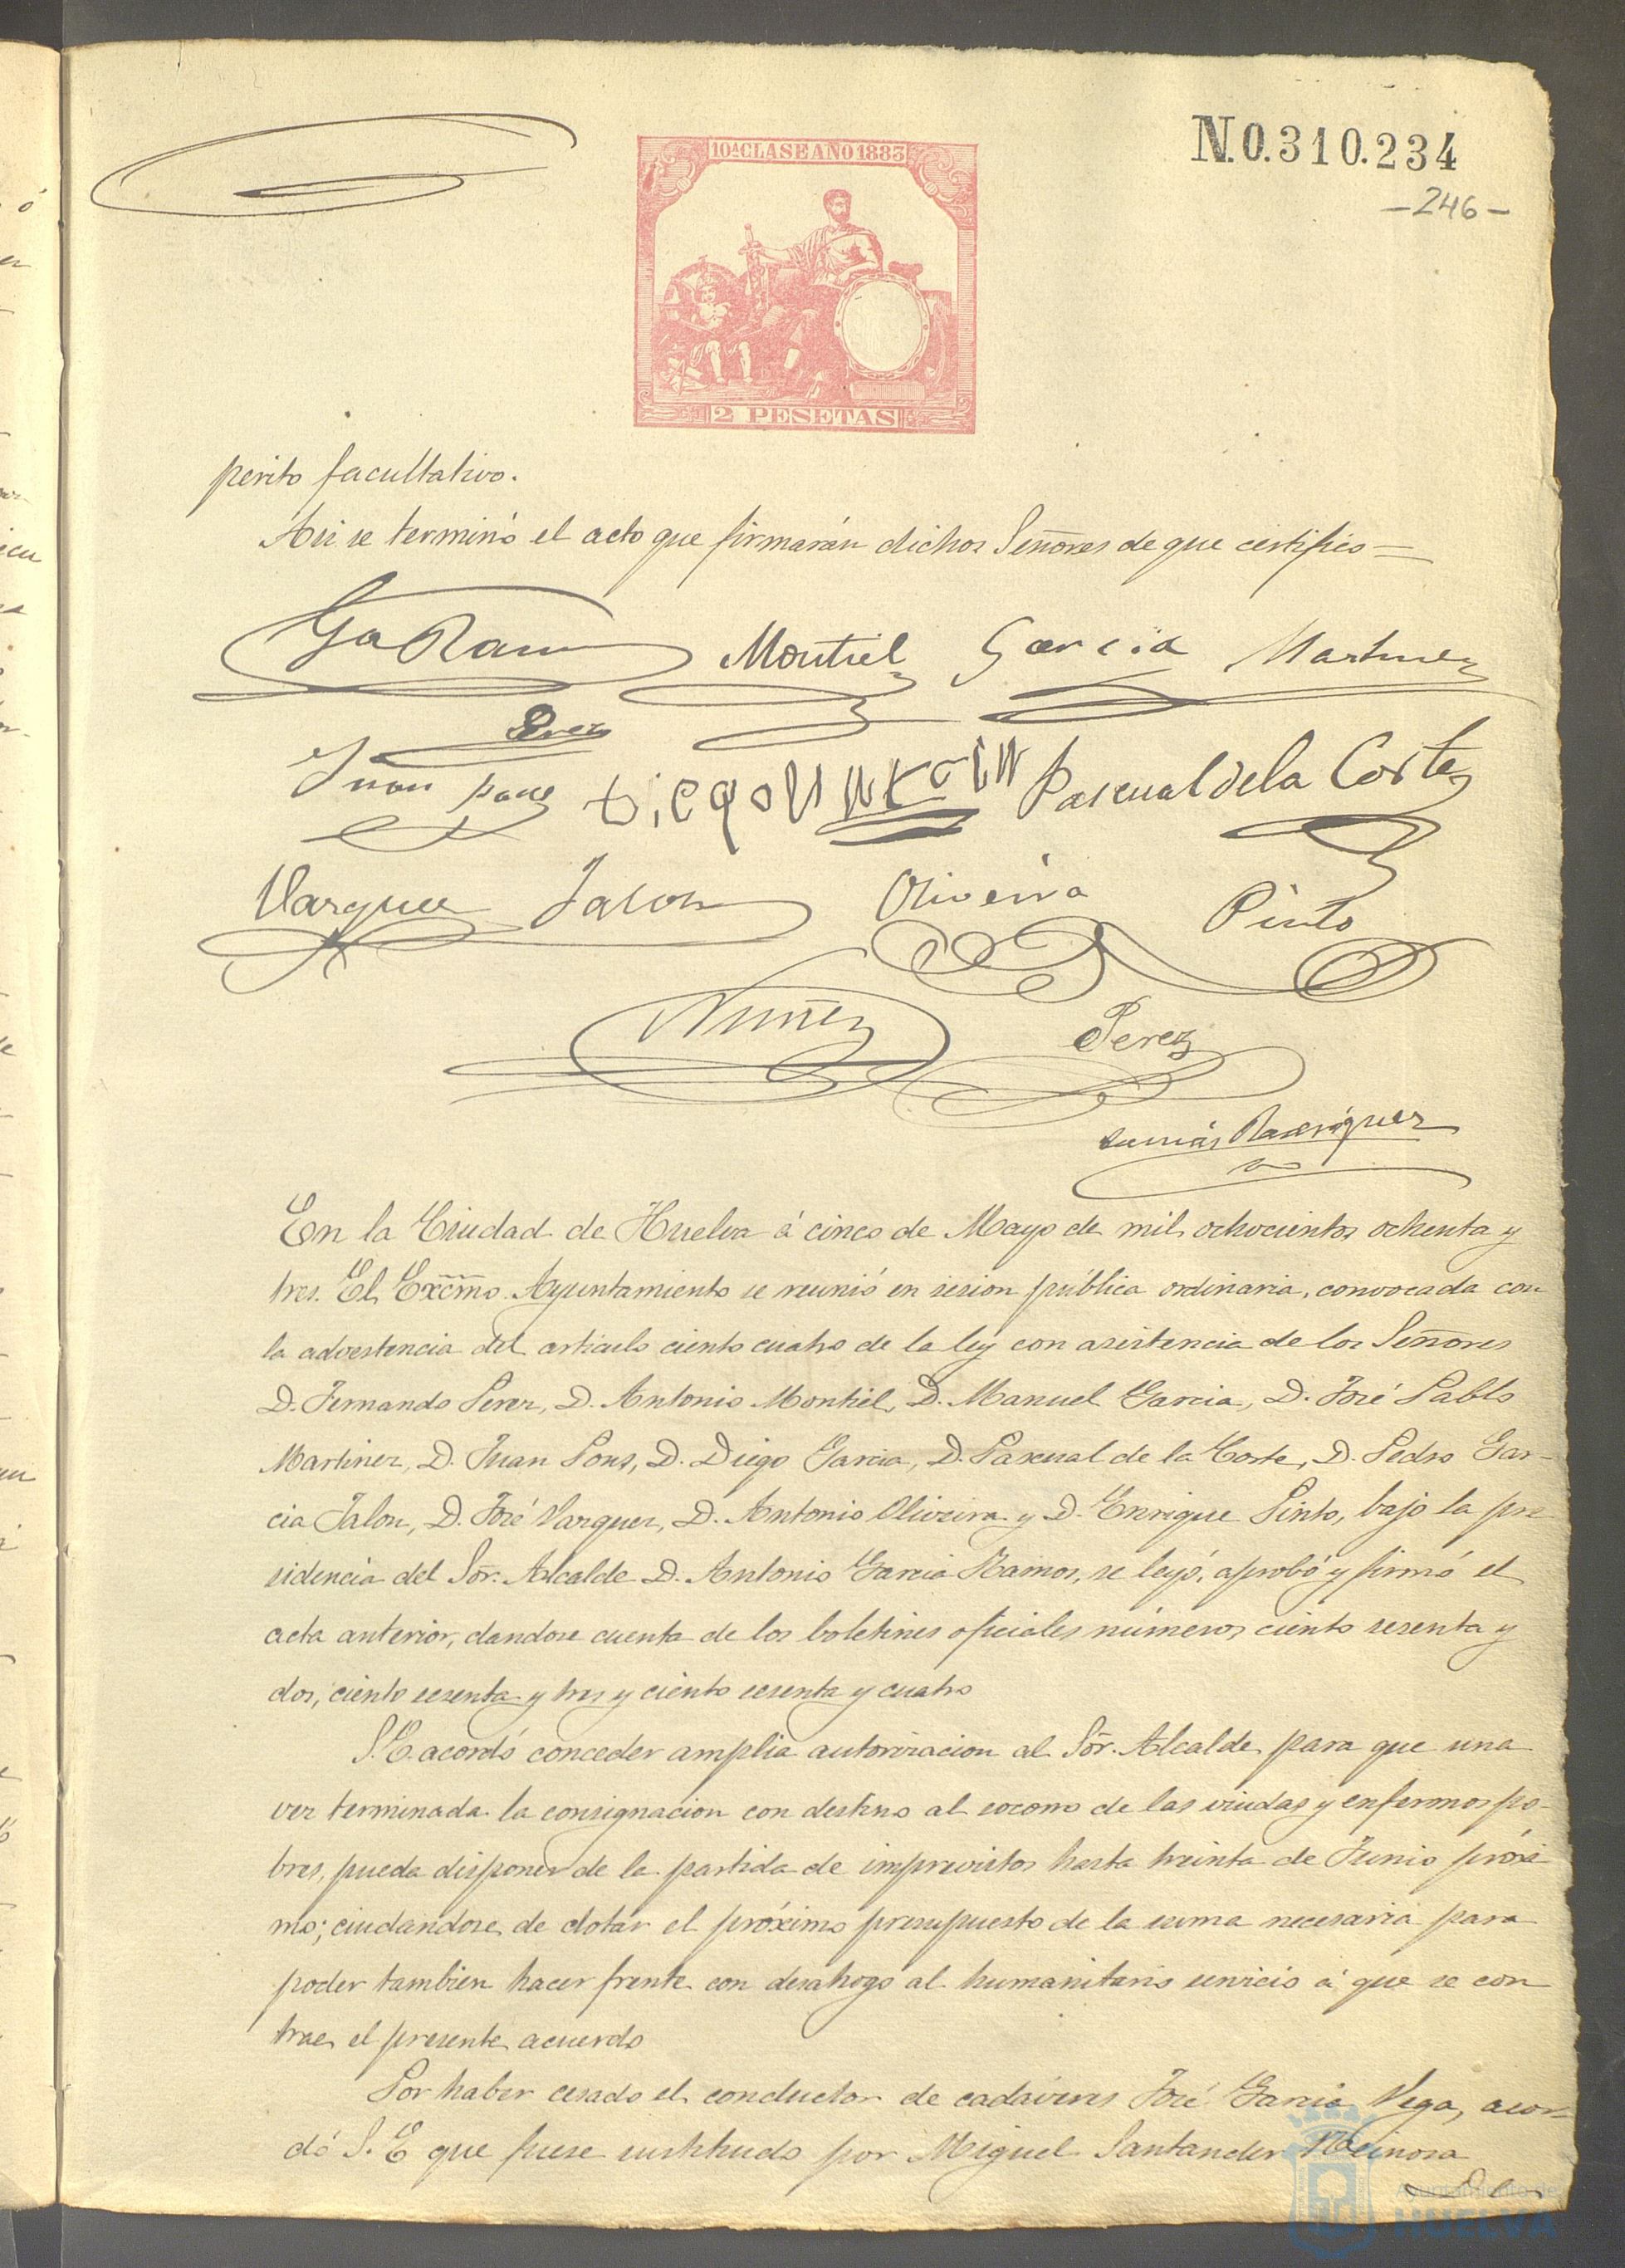 10ª CLASE AÑO 1883
N.0.310.234
-246-
2 PESETAS
perito facultativo.
Asi se terminó el acto que firmarán dichos Señores de que certifico=
Gª Ram Montiel Garcia Martinez
Perez
Juan Pons Diego Garcia Pascual de la Corte
Vazquez Jalon Oliveira Pinto
Nuñez Perez
Tomás Rodriguez
En la Ciudad de Huelva á cinco de Mayo de mil ochocientos ochenta y
tres. El Excmo. Ayuntamiento se reunió en sesion pública ordinaria, convocada con
la advertencia del articulo ciento cuatro de la ley con asistencia de los Señores
D. Fernando Perez, D. Antonio Montiel, D. Manuel Garcia, D. José Pablo
Martinez, D. Juan Pons, D. Diego Garcia, D. Pascual de la Corte, D. Pedro Gar-
cia Jalon, D. José Vazquez, D. Antonio Oliveira y D. Enrique Pinto, bajo la pre
sidencia del Sõr. Alcalde D. Antonio Garcia Ramos, se leyó, aprobó y firmó el
acta anterior, dandose cuenta de los boletines oficiales números ciento sesenta y
dos, ciento sesenta y tres y ciento sesenta y cuatro
S.E. acordó conceder amplia autorizacion al Sõr. Alcalde para que una
vez terminada la consignacion con destino al socorro de las viudas y enfermos po-
bres, pueda disponer de la partida de imprevistos hasta treinta de Junio próxi
mo; ciudandose de dotar el próximo presupuesto de la suma necesaria para
poder tambien hacer frente con desahogo al humanitario servicio á que se con
trae el presente acuerdo
Por haber cesado el conductor de cadáveres José Garcia Vega, acor-
dó S. E que fuese sustituido por Miguel Santander Reinosa
Ayuntamiento de
HUELVA